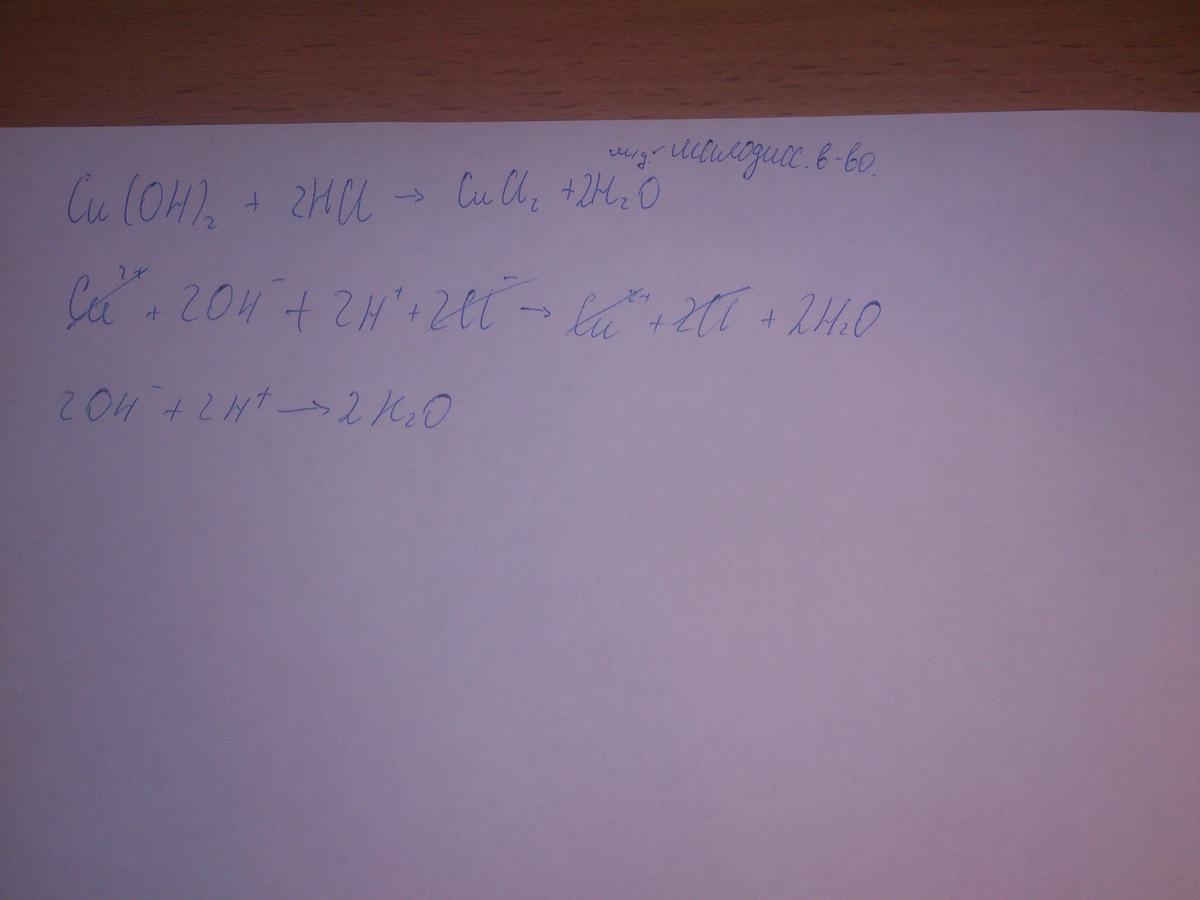 м.д. - малодисс. в-во.
Cu(OH)₂ + 2HCl → CuCl₂ + 2H₂O
Cu²⁺ + 2OH⁻ + 2H⁺ + 2Cl⁻ → Cu²⁺ + 2Cl⁻ + 2H₂O
2OH⁻ + 2H⁺ → 2H₂O